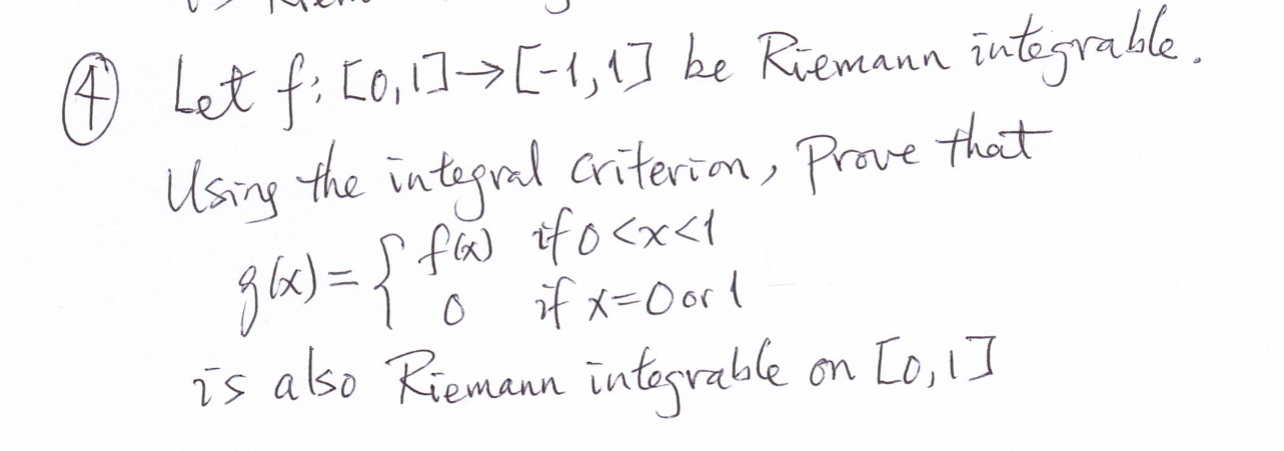 ④ Let f: [0,1]→[-1,1] be Riemann integrable.
Using the integral criterion, Prove that
g(x) = { f(x) if 0<x<1
0 if x=0 or 1
is also Riemann integrable on [0,1]